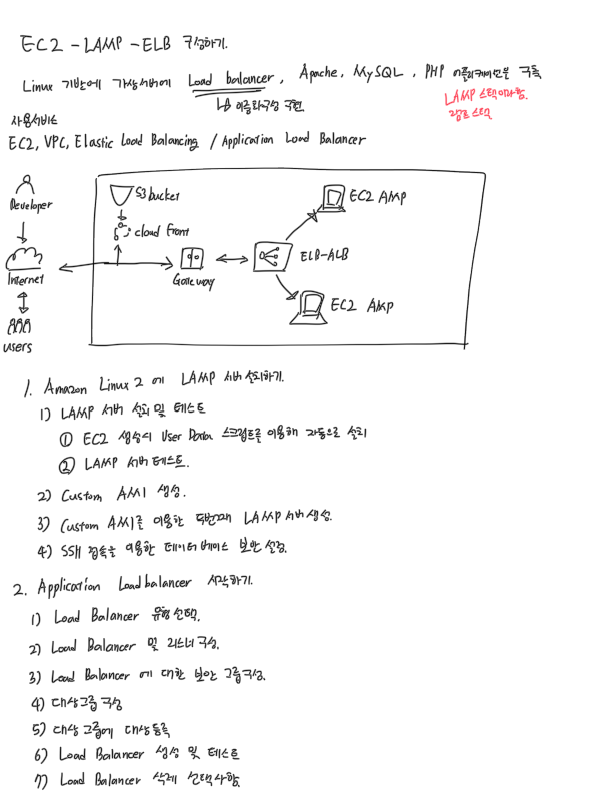 EC2 - LAMP - ELB 구성하기.
Linux 기반에 가상서버에 Load balancer, Apache, MySQL, PHP 어플리케이션을 구축
↳ 이중화구성 구현
LAMP 스택이라함.
사용서비스
EC2, VPC, Elastic Load Balancing / Application Load Balancer
Developer
Internet
users
S3 bucket
cloud front
Gateway
ELB-ALB
EC2 AMP
EC2 AMP
1. Amazon Linux 2 에 LAMP 서버 설치하기.
1) LAMP 서버 설치 및 테스트
① EC2 생성시 User Data 스크립트를 이용해 자동으로 설치
② LAMP 서버 테스트.
2) Custom AMI 생성.
3) Custom AMI를 이용한 두번째 LAMP 서버 생성.
4) SSH 접속을 이용한 데이터베이스 보안 설정.
2. Application Load balancer 시작하기.
1) Load Balancer 유형 선택.
2) Load Balancer 및 리스너 구성.
3) Load Balancer 에 대한 보안 그룹구성.
4) 대상그룹 구성
5) 대상 그룹에 대상등록
6) Load Balancer 생성 및 테스트
7) Load Balancer 삭제 선택사항.